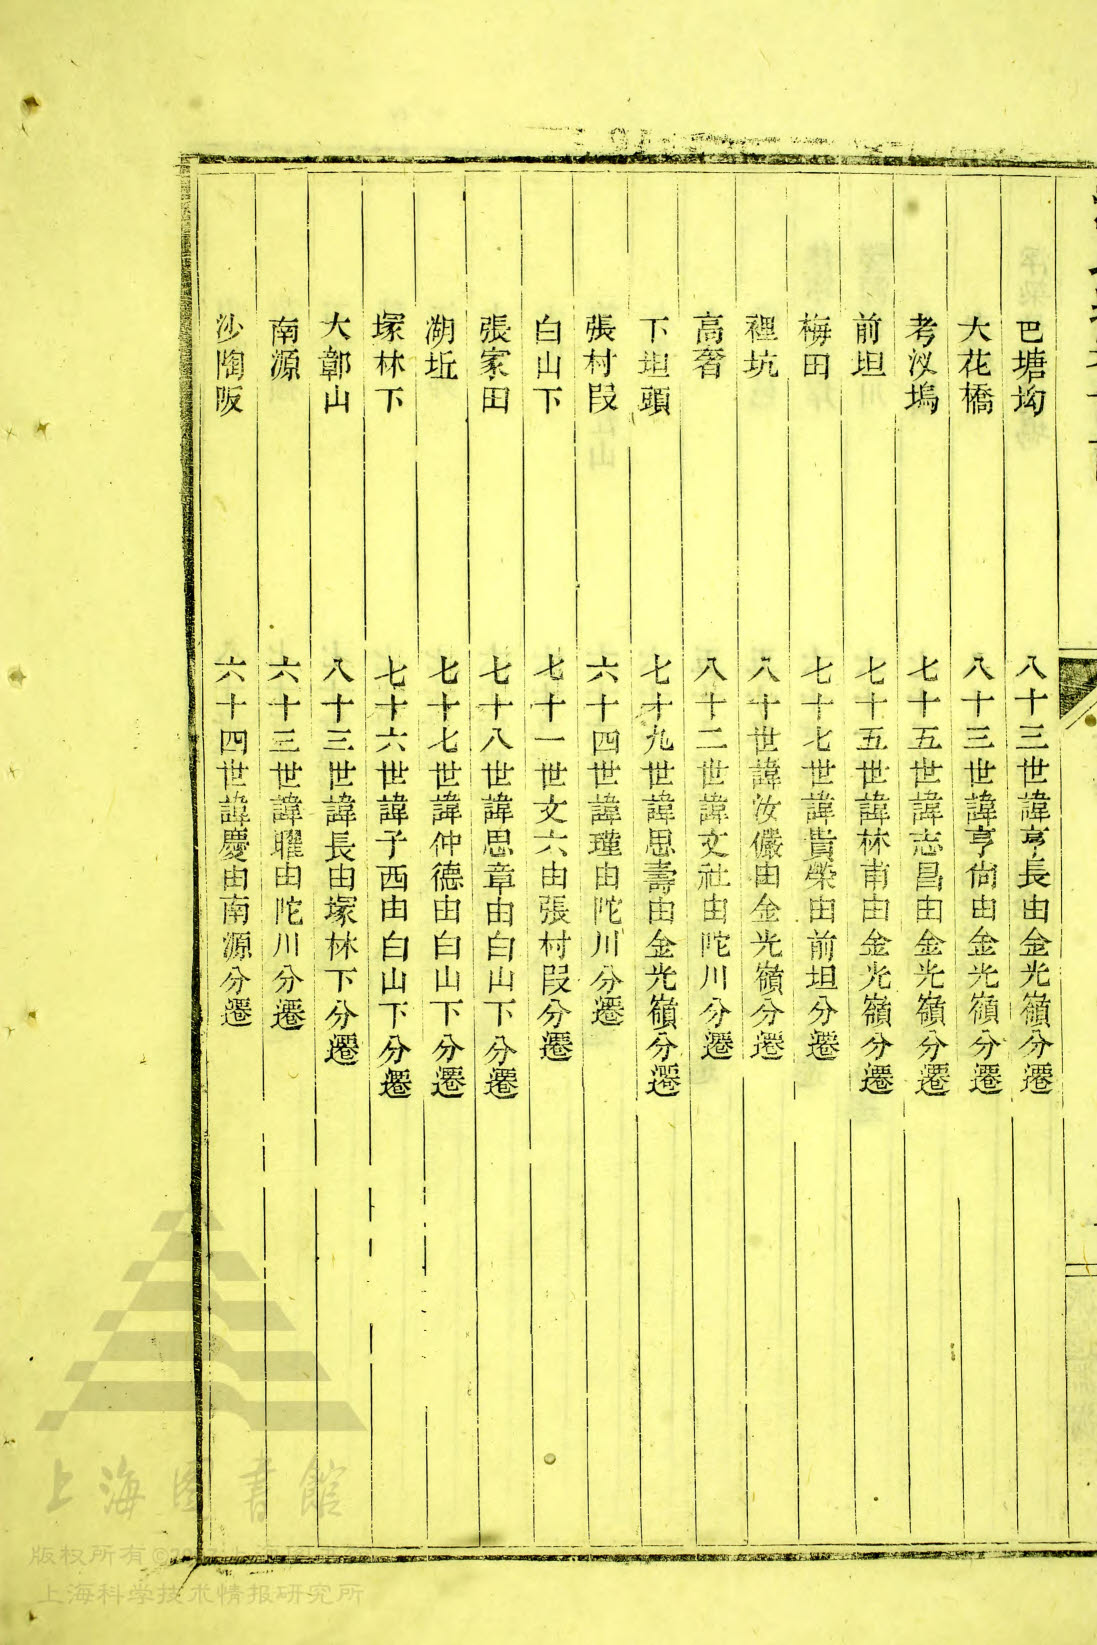 巴塘坳 八十三世諱亨長由金光嶺分遷
大花橋 八十三世諱亨尙由金光嶺分遷
考汊塢 七十五世諱志昌由金光嶺分遷
前坦 七十五世諱林甫由金光嶺分遷
梅田 七十七世諱貴榮由前坦分遷
裡坑 八十世諱汝儼由金光嶺分遷
高奢 八十二世諱文社由陀川分遷
下坦頭 七十九世諱思壽由金光嶺分遷
張村段 六十四世諱瑾由陀川分遷
白山下 七十一世文六由張村段分遷
張家田 七十八世諱思章由白山下分遷
湖坵 七十七世諱仲德由白山下分遷
塚林下 七十六世諱子西由白山下分遷
大鄣山 八十三世諱長由塚林下分遷
南源 六十三世諱曜由陀川分遷
沙陶阪 六十四世諱慶由南源分遷
上海图書館
版权所有©
上海科学技术情报研究所